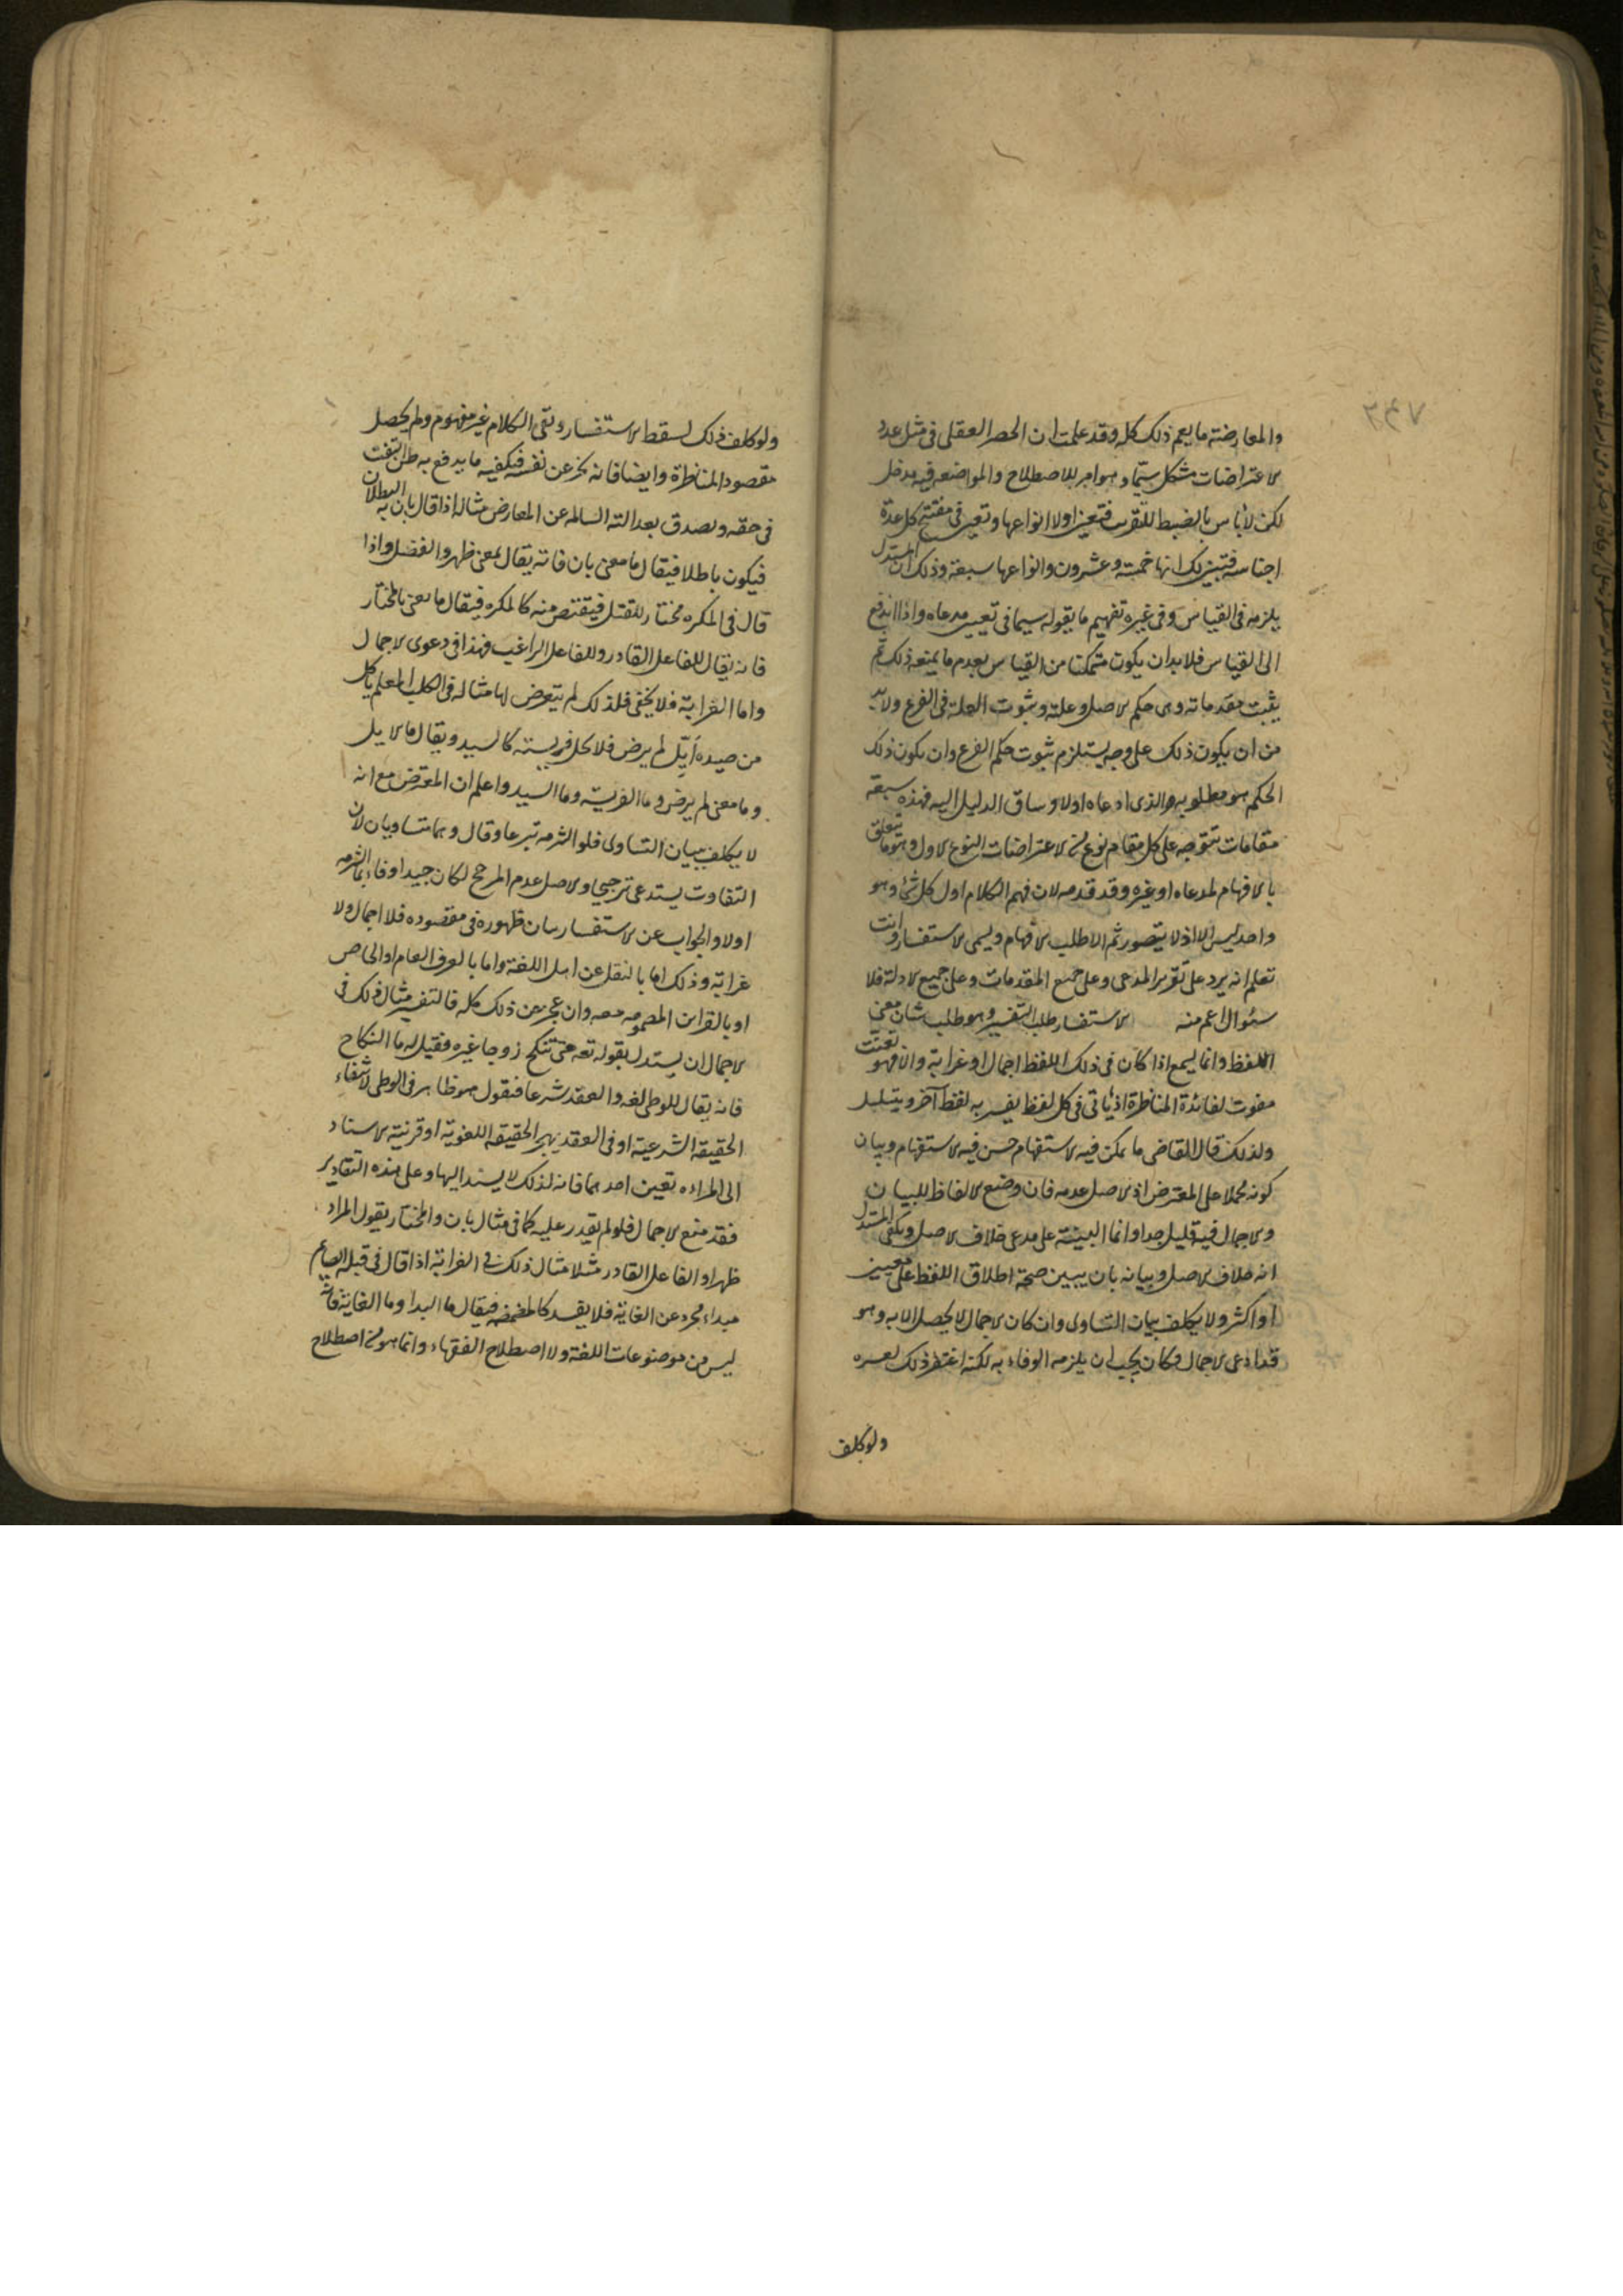 والمعارضة ما يعم ذلك كله وقد علمت ان الحصر العقلى فى مثل عدد
الاعتراضات مشكل سيما وهو امر للاصطلاح والمواضعة فيه مدخل
لكن لا بأس بالضبط للتقريب فتعين اولا انواعها وتعين فى مفتتح كل عدة
اجناسه فتبين لك انها خمسة وعشرون وانواعها سبعة وذلك ان المستدل
يلزمه فى القياس وفى غيره تفهيم ما يقوله سيما فى تعيين مدعاه واذا اندفع
الى القياس فلا بد ان يكون متمكنا من القياس بعدم ما يمنعه ذلك ثم
يثبت مقدماته وهى حكم الاصل وعلته وثبوت العلة فى الفرع ولا بد
من ان يكون ذلك على وجه يستلزم ثبوت حكم الفرع وان يكون ذلك
الحكم هو مطلوبه والذى ادعاه اولا وساق الدليل اليه فهذه سبعة
مقامات تتوجه على كل مقام نوع من الاعتراضات النوع الاول وهو ما يتعلق
بالافهام لمدعاه او غيره وقد قدمه لان فهم الكلام اول كل شئ وهو
واحد ليس الا اذ لا يتصور ثم الا طلب الافهام ويسمى الاستفسار وانت
تعلم انه يرد على تقرير المدعى وعلى جميع المقدمات وعلى جميع الادلة فلا
سئوال اعم منه الاستفسار طلب التفسير وهو طلب بيان معنى
اللفظ وانما يسمع اذا كان فى ذلك اللفظ اجمال او غرابة والا فهو تعنت
مفوت لفائدة المناظرة اذ ياتى فى كل لفظ يفسر به لفظ آخر ويتسلسل
ولذلك قال القاضى ما يمكن فيه الاستفهام حسن فيه الاستفهام وبيان
كونه مجملا على المعترض اذ الاصل عدمه فان وضع الالفاظ للبيان
والاجمال فيه قليل جدا وانما البينة على مدعى خلاف الاصل ويكفى المستدل
انه خلاف الاصل وبيانه بان يبين صحة اطلاق اللفظ على معنيين
او اكثر ولا يكلف ببيان التساوى وان كان الاجمال لا يحصل الا به وهو
قد ادعى الاجمال وكان يجب ان يلزمه الوفاء به لكنه اغتفر ذلك لعسره
ولو كلف
ولو كلف ذلك لسقط الاستفسار وبقى الكلام غير مفهوم ولم يحصل
مقصود المناظرة وايضا فانه يخبر عن نفسه فيكفيه ما يدفع به ظن التعنت
فى حقه ويصدق بعدالته السالمة عن المعارض مثاله اذا قال بان به البطلان
فيكون باطلا فيقال ما معنى بان فانه يقال لمعنى ظهر والفصل واذا
قال فى المكره مختار للقتل فيقتص منه كالمكره فيقال ما معنى بالمختار
فانه يقال للفاعل القادر وللفاعل الراغب فهذا فى دعوى الاجمال
واما الغرابة فلا يخفى فلذلك لم يتعرض لها مثاله فى الكلب المعلم ياكل
من صيده ايِّل لم يرض فلا تحل فريسته كالسيد ويقال ما الايل
وما معنى لم يرض وما الفريسة وما السيد واعلم ان المعترض مع انه
لا يكلف ببيان التساوى فلو التزمه تبرعا وقال وهما متساويان لان
التفاوت يستدعى ترجيحا والاصل عدم المرجح لكان جيدا وفاء بما التزمه
اولا والجواب عن الاستفسار بيان ظهوره فى مقصوده فلا اجمال ولا
غرابة وذلك اما بالنقل عن اهل اللغة واما بالعرف العام او الخاص
او بالقراين المضمومه معه وان عجز عن ذلك كله فالتفسير مثال ذلك فى
الاجمال ان يستدل بقوله تعه حتى تنكح زوجا غيره فقيل له ما النكاح
فانه يقال للوطى لغه والعقد شرعا فنقول هو ظاهر فى الوطى لانتفاء
الحقيقة الشرعية او فى العقد بهجر الحقيقة اللغوية او قرينة الاسناد
الى المراءه تعين احدهما فانه لذلك لا يسند اليها وعلى هذه التقادير
فقد منع الاجمال فلو لم يقدر عليه كما فى مثال بان والمختار يقول المراد
ظهر او الفاعل القادر مثلا مثال ذلك فى الغرابة اذا قال فى قبلة الصايم
مبداء مجرد عن الغاية فلا يفسد كالمضمضه فيقال ما المبدا وما الغاية فانه
ليس من موضوعات اللغة ولا اصطلاح الفقهاء وانما هو من اصطلاح